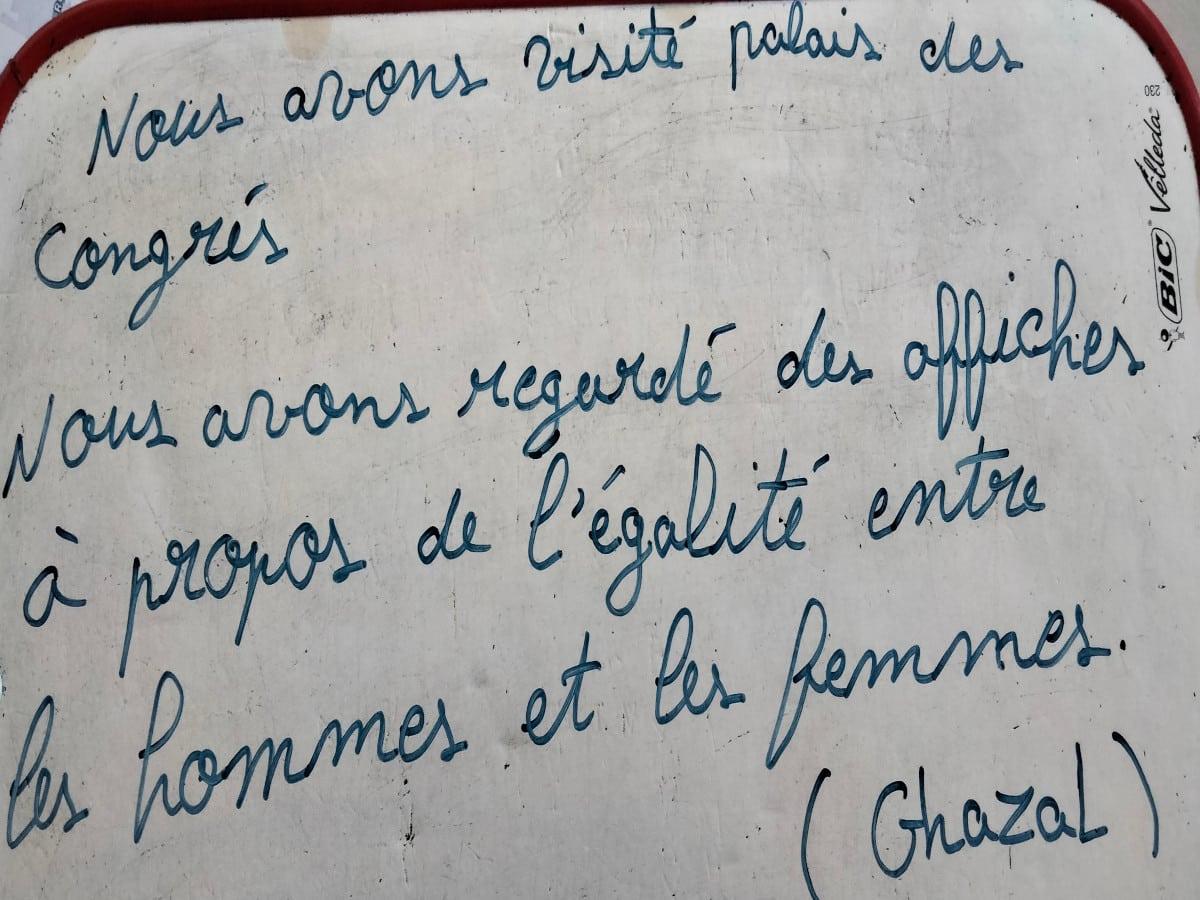 Nous avons visité palais des
Congrés
Nous avons regardé des affiches
à propos de l'égalité entre
les hommes et les femmes.
(Ghazal)
BIC Velleda 230